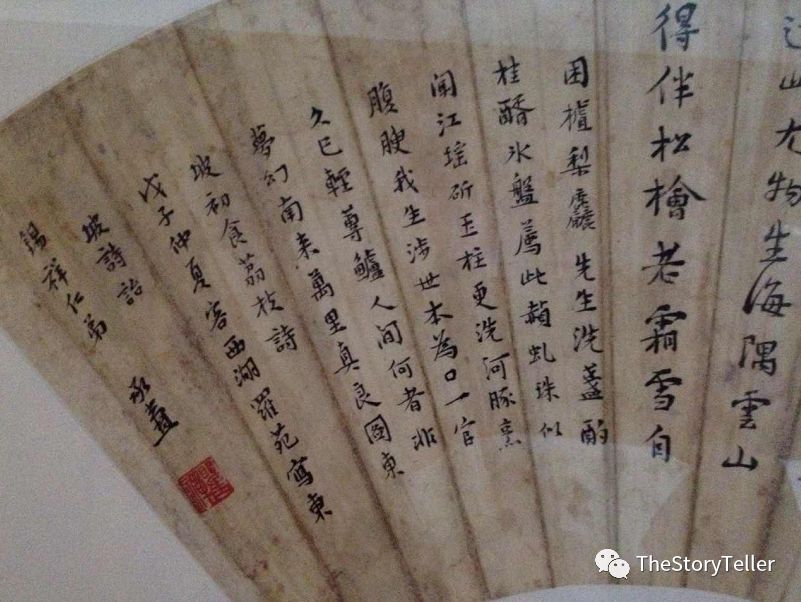 此尤物生海隅雲山
得伴松檜老霜雪自
困樝梨麤先生洗盞酌
桂醑冰盤薦此赬虬珠似
聞江瑤斫玉柱更洗河豚烹
腹腴我生涉世本為口一官
久已輕蓴鱸人间何者非
夢幻南来萬里真良圖東
坡初食荔枝詩
戊子仲夏客西湖羅苑寫東
坡詩詒
錫祥仁弟
承燾
TheStoryTeller